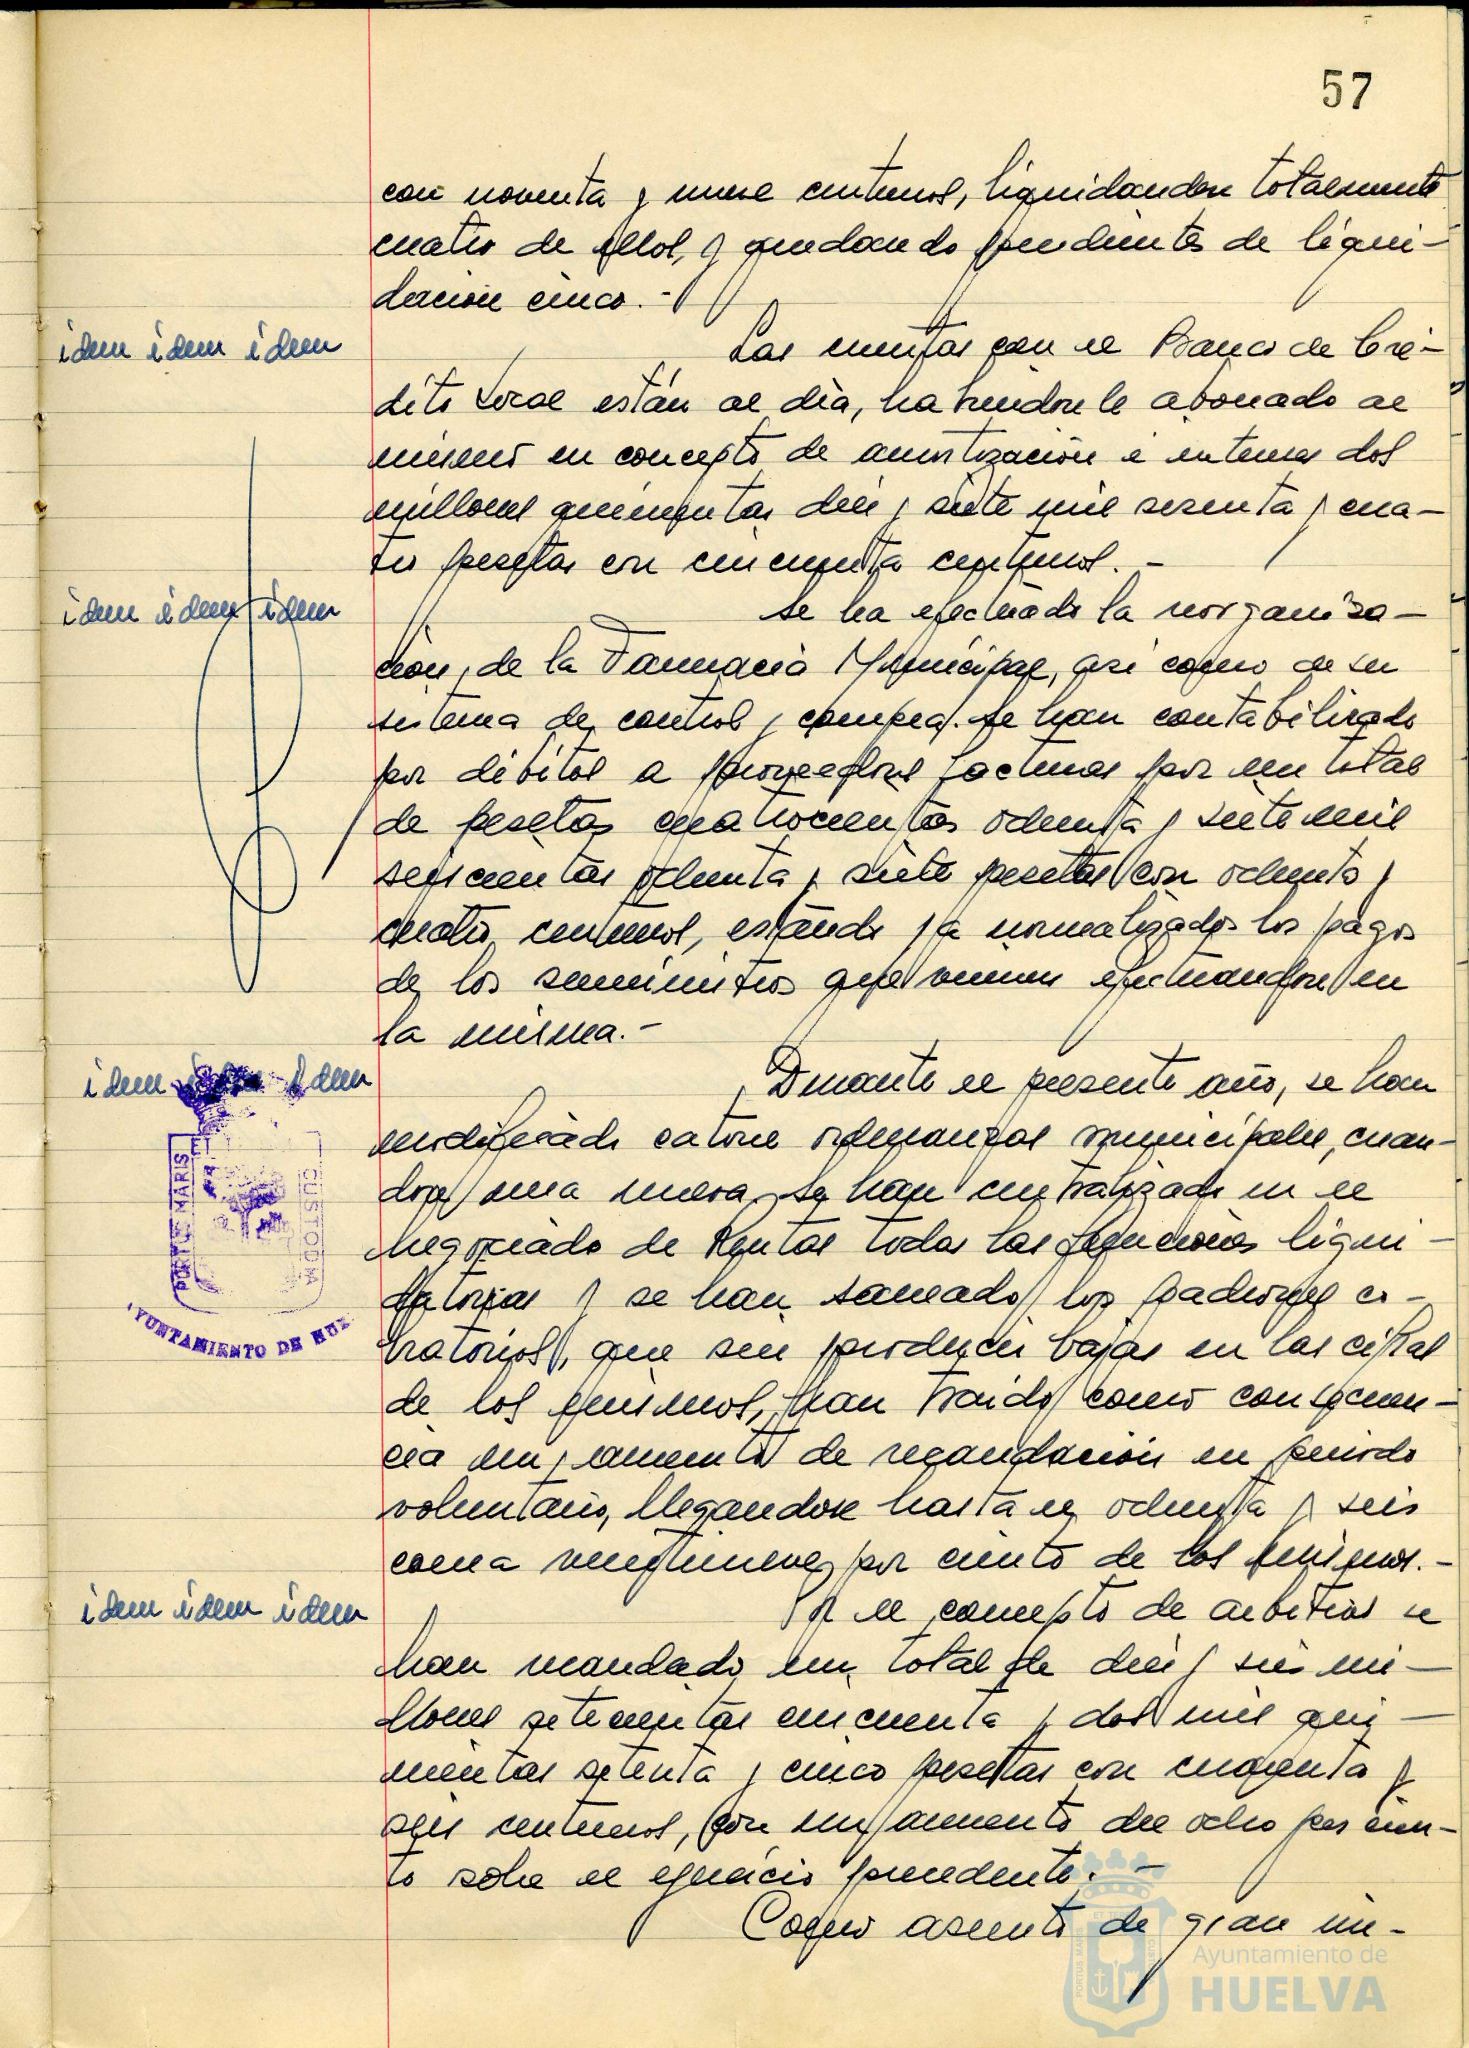 57
con noventa y nueve centimos, liquidandose totalmente
cuatro de ellos, y quedando pendientes de liqui-
dación cinco.-
idem idem idem
Las cuentas con el Banco de Cré-
dito Local están al día, habiendosele abonado al
mismo en concepto de amortización e intereses dos
millones quinientas diez y siete mil sesenta y cua-
tro pesetas con cincuenta centimos.-
idem idem idem
Se ha efectuado la reorganiza-
ción, de la Farmacia Municipal, así como de su
sistema de control y compra. Se han contabilizado
por débitos a proveedores facturas por un total
de pesetas cuatrocientas ochenta y siete mil
seiscientas ochenta y siete pesetas con ochenta y
cuatro centimos, estando ya normalizados los pagos
de los suministros que vienen efectuandose en
la misma.-
idem idem idem
Durante el presente año, se han
modificado catorce ordenanzas municipales, crean-
dose una nueva, se han centralizado en el
Negociado de Rentas todas las funciones liqui-
datorias y se han saneado los padrones co-
bratorios, que sin producir bajas en las cifras
de los mismos, han traido como consecuen-
cia un aumento de recaudación en periodo
voluntario, llegandose hasta el ochenta y seis
coma veintinueve por ciento de los mismos.-
idem idem idem
Por el concepto de arbitrios se
han recaudado un total de diez y seis mi-
llones setecientas cincuenta y dos mil qui-
nientas setenta y cinco pesetas con cuarenta y
seis centimos, con un aumento del ocho por cien-
to sobre el ejercicio precedente.-
Como asunto de gran im-
PORTUS MARIS ET CUSTODIA
AYUNTAMIENTO DE HUE
Ayuntamiento de
HUELVA